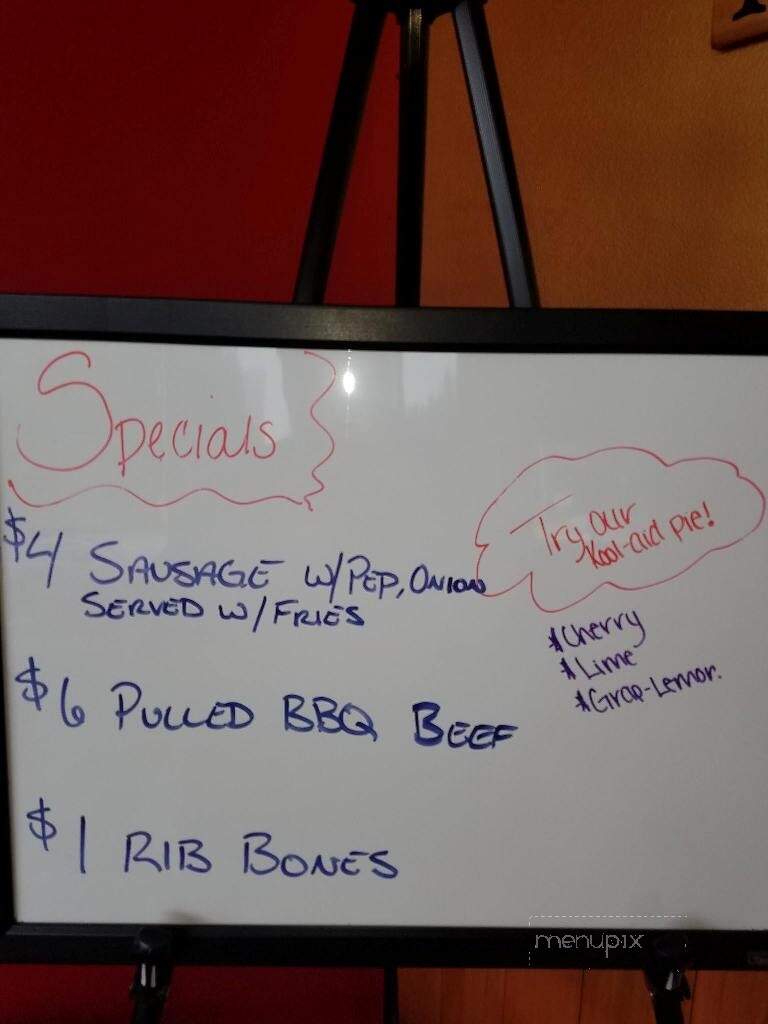 Specials
$4 SAUSAGE W/PEP, ONION
SERVED W/FRIES
$6 PULLED BBQ BEEF
$1 RIB BONES
Try our
Kool-aid pie!
*Cherry
*Lime
*Grap-Lemon
menupix